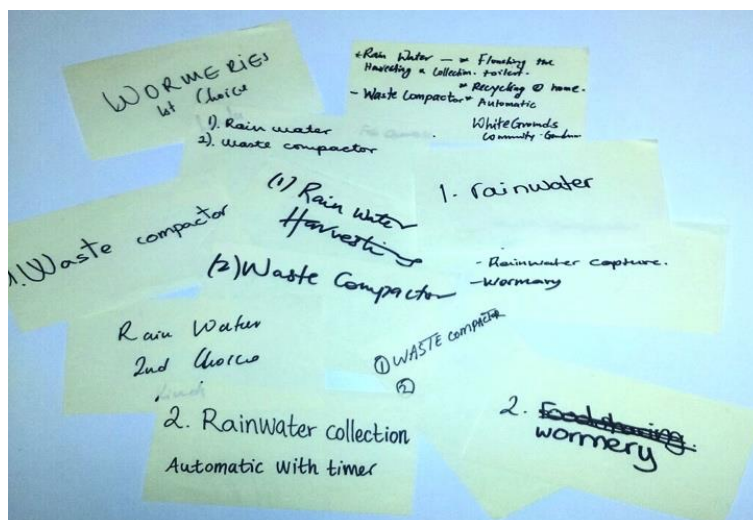 WORMERIES
1st Choice
+Rain Water — * Flushing the
Harvesting & Collection. toilert.
* Recycling @ home.
- Waste Compactor * Automatic
WhiteGrounds
Community Garden
1). Rain water
2). waste compactor
(1) Rain Water
Harvesting
(2) Waste Compactor
1. rainwater
1. Waste compactor
- Rainwater capture.
- Wormary
Rain Water
2nd Choice
① WASTE COMPACTOR
②
2. Rainwater collection
Automatic with timer
2. Foodsharing.
wormery